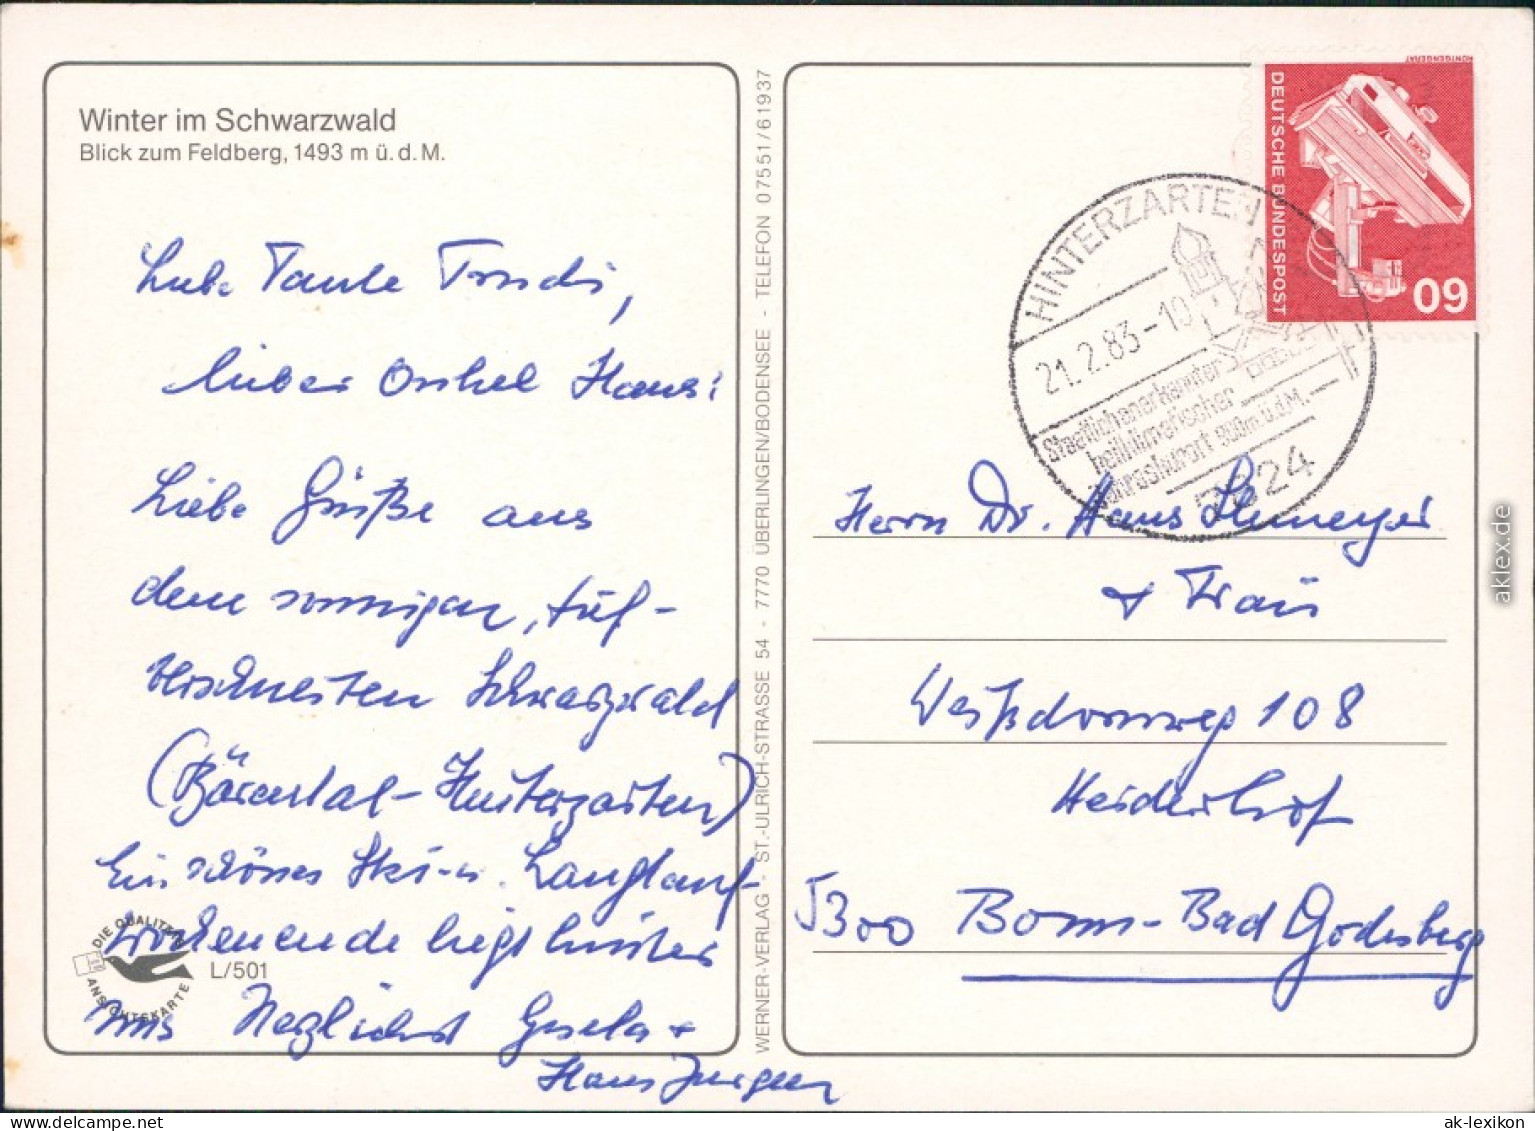 Winter im Schwarzwald
Blick zum Feldberg, 1493 m ü. d. M.
Liebe Tante Trudi,
lieber Onkel Hans!
Liebe Grüße aus
dem sonnigen, tief-
verschneiten Schwarzwald
(Bärental-Hinterzarten)
Ein schönes Ski- u. Langlauf-
wochenende liegt hinter
uns Herzlichst Gisela +
Hans Jürgen
DIE QUALITÄTS
ANSICHTSKARTE
L/501
WERNER-VERLAG - ST.-ULRICH-STRASSE 54 - 7770 ÜBERLINGEN/BODENSEE - TELEFON 07551/61937
RÖNTGENGERÄT
DEUTSCHE BUNDESPOST
60
HINTERZARTEN
21.2.83-10
Staatlichanerkannter
heilklimatischer
Jahreskurort 900m.ü.d.M.
7824
Herrn Dr. Hans
+ Frau
Weißdornweg 108
Heiderhof
5300 Bonn-Bad Godesberg
aklex.de
ak-lexikon